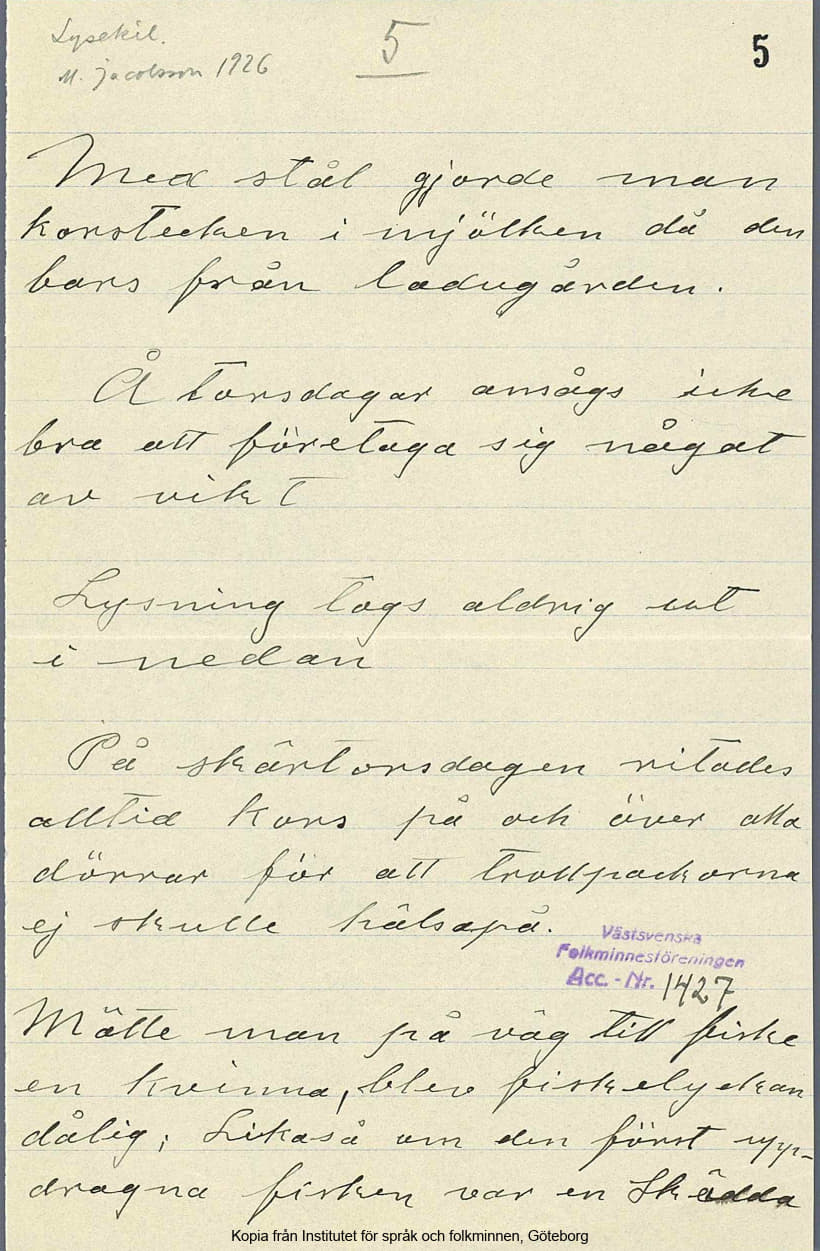 Lysekil.
M. Jacobsson 1926
5
5
Med stål gjorde man
korstecken i mjölken då den
bars från ladugården.
Å torsdagar ansågs icke
bra att företaga sig något
av vikt
Lysning togs aldrig ut
i nedan
På skärtorsdagen ritades
alltid kors på och över alla
dörrar för att trollpackorna
ej skulle hälsapå.
Västsvenska
Folkminnesföreningen
Acc. - Nr. 1427
Mötte man på väg till fiske
en kvinna, blev fiskelyckan
dålig; Likaså om den först upp-
dragna fisken var en Skädda
Kopia från Institutet för språk och folkminnen, Göteborg